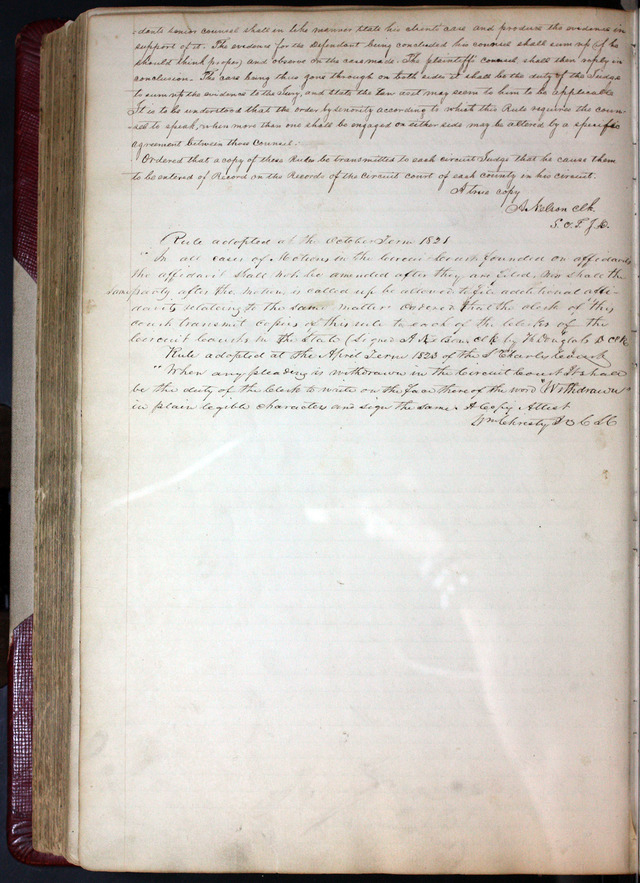 dants senior counsel shall in like manner state his clients case and produce the evidence in
support of it. The evidence for the defendant being concluded his counsel shall sum up (if he
should think proper) and observe on the case made. The plaintiffs counsel shall then reply in
conclusion. The case being thus gone through on both sides it shall be the duty of the Judge
to sum up the evidence to the Jury, and state the law as it may seem to him to be applicable
It is to be understood that the order by seniority according to which this Rule requires the coun-
sel to speak, when more than one shall be engaged on either side may be altered by a specific
agreement between those counsel.
Ordered that a copy of these Rules be transmitted to each circuit Judge that he cause them
to be entered of Record on the Records of the Circuit court of each county in his circuit.
A true copy
A. Nelson clk.
Rule adopted at the October Term 1821
"In all cases of Motions in the Circuit Courts founded on affidavits
the affidavit shall not be amended after they are filed, nor shall the
same party after the motion is called up be allowed to file additional affi-
davits relating to the same matter Ordered that the clerk of this
court transmit copies of this rule to each of the Clerks of the
Circuit Courts in the State (Signed A Nelson, Clk by Th Douglass D Clk
Rule adopted at the April Term 1823 of the St Charles
"When any pleading is withdrawn in the Circuit Court It shall
be the duty of the Clerk to write on the face thereof the word "Withdrawn"
in plain legible characters and sign the same. A Copy Attest
Wm Christy